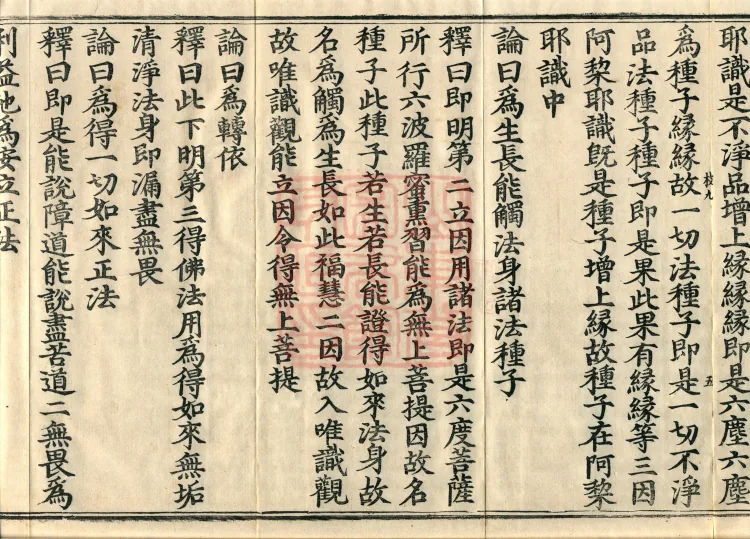 耶識是不淨品增上緣緣緣即是六塵六塵
為種子緣緣故一切法種子即是一切不淨
品法種子種子即是果此果有緣緣等三因
阿黎耶識旣是種子增上緣故種子在阿黎
耶識中
論曰為生長能觸法身諸法種子
釋曰即明第二立因用諸法即是六度菩薩
所行六波羅蜜熏習能為無上菩提因故名
種子此種子若生若長能證得如來法身故
名為觸為生長如此福慧二因故入唯識觀
故唯識觀能立因令得無上菩提
論曰為轉依
釋曰此下明第三得佛法用為得如來無垢
清淨法身即漏盡無畏
論曰為得一切如來正法
釋曰即是能說障道能說盡苦道二無畏為
利益他為安立正法